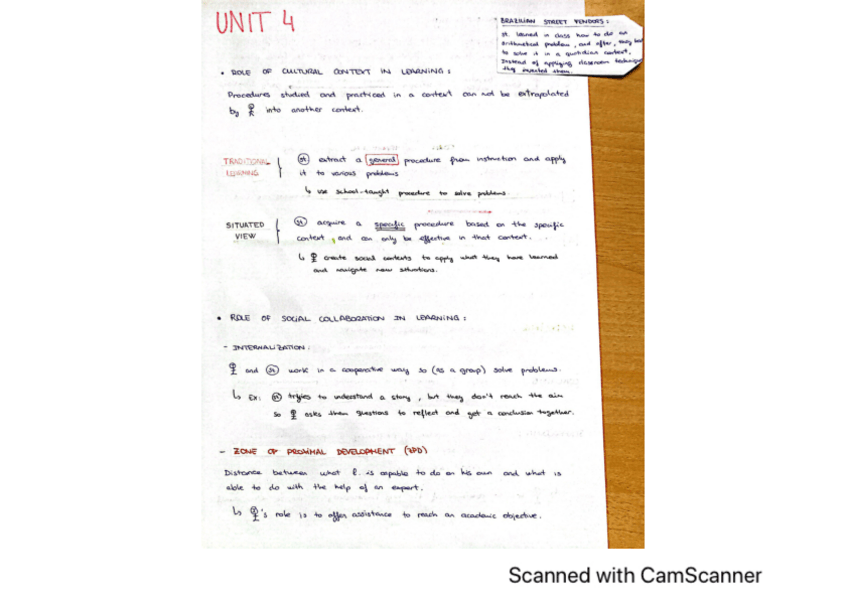 UNIT 4
BRAZILIAN STREET VENDORS:
st. learned in class how to do an
arithmetical problem, and after, they had
to solve it in a quotidian context.
Instead of applying classroom technique
they invented them.
• ROLE OF CULTURAL CONTEXT IN LEARNING:
Procedures studied and practiced in a context can not be extrapolated
by into another context.
TRADITIONAL LEARNING
st extract a general procedure from instruction and apply
it to various problems
↳ use school-taught procedure to solve problems.
SITUATED VIEW
st acquire a specific procedure based on the specific
context, and can only be effective in that context.
↳ create social contexts to apply what they have learned
and navigate new situations.
• ROLE OF SOCIAL COLLABORATION IN LEARNING:
- INTERNALIZATION:
and st work in a cooperative way so (as a group) solve problems.
↳ Ex: st tryies to understand a story, but they don't reach the aim
so asks them questions to reflect and get a conclusion together.
- ZONE OF PROXIMAL DEVELOPMENT (ZPD)
Distance between what l. is capable to do on his own and what is
able to do with the help of an expert.
↳ 's role is to offer assistance to reach an academic objective.
Scanned with CamScanner